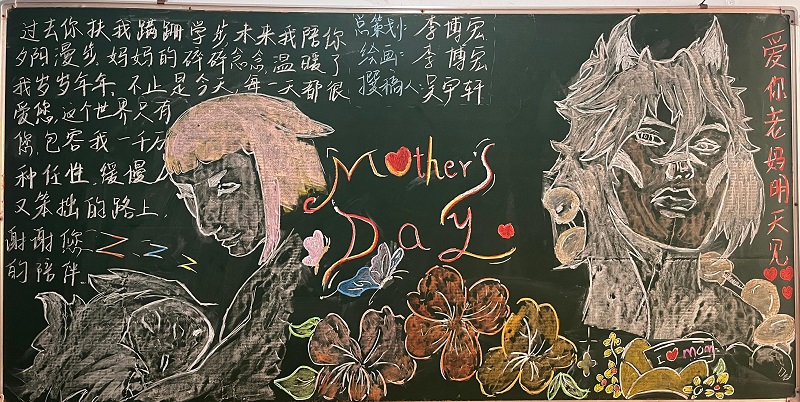 过去你扶我蹒跚学步未来我陪你
夕阳漫步妈妈的碎碎念念温暖了
我岁岁年年,不止是今天,每一天都很
爱您,这个世界只有
您,包容我一千万
种任性,缓慢
又笨拙的路上,
谢谢您
的陪伴。
总策划:李博宏
绘画:李博宏
撰稿人:吴宇轩
Mother's
Day
爱你老妈明天见
I ❤ mom